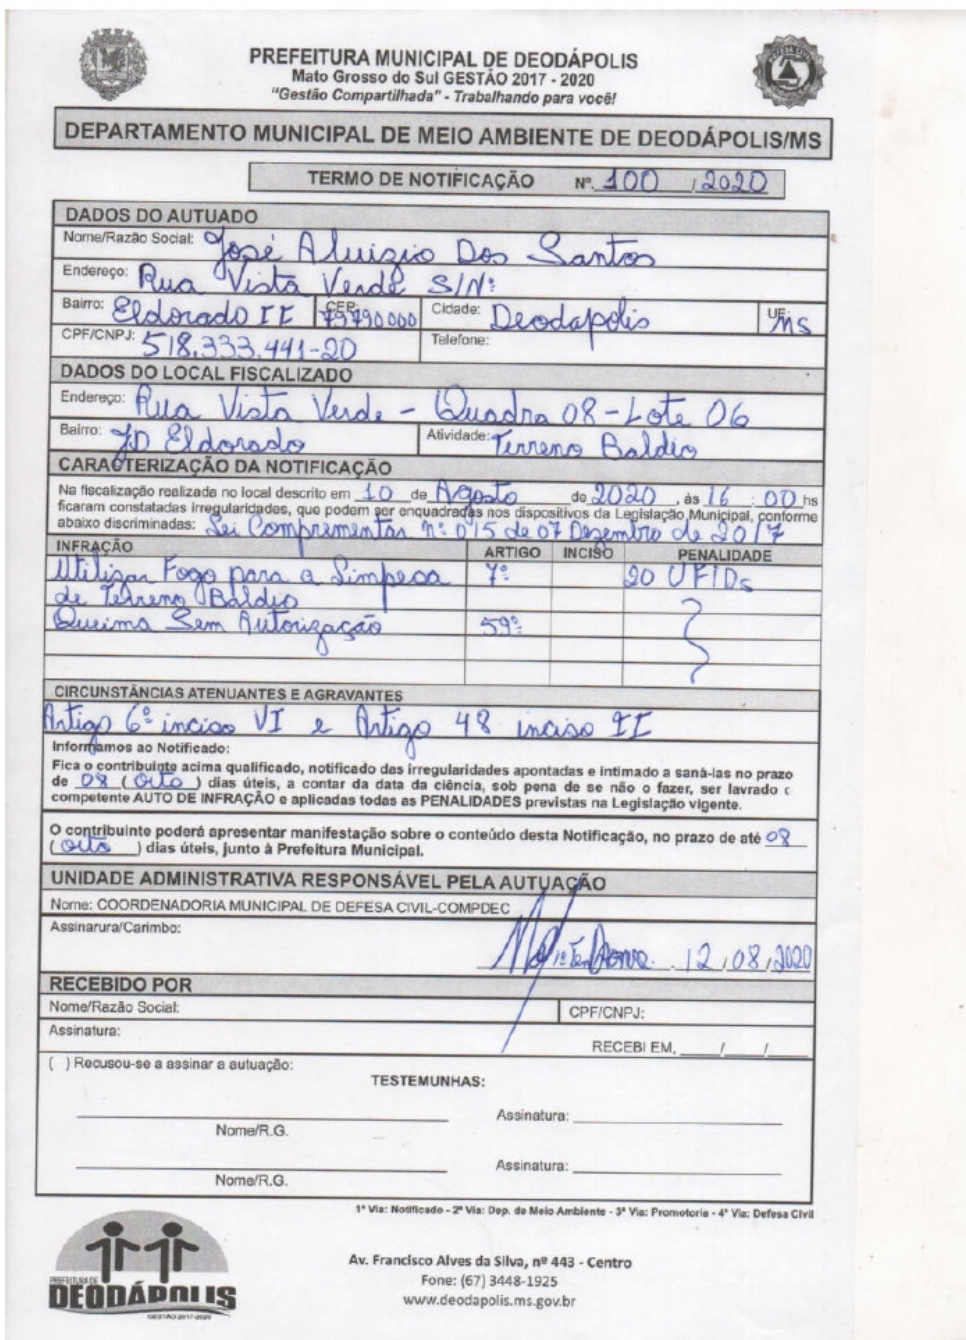 PREFEITURA MUNICIPAL DE DEODÁPOLIS
Mato Grosso do Sul GESTÃO 2017 - 2020
"Gestão Compartilhada" - Trabalhando para você!
DEPARTAMENTO MUNICIPAL DE MEIO AMBIENTE DE DEODÁPOLIS/MS
TERMO DE NOTIFICAÇÃO Nº. 100 / 2020
DADOS DO AUTUADO
Nome/Razão Social: José Aluizio Dos Santos
Endereço: Rua Vista Verde S/Nº
Bairro: Eldorado II CEP: 79790000 Cidade: Deodapolis UF: MS
CPF/CNPJ: 518.333.441-20 Telefone:
DADOS DO LOCAL FISCALIZADO
Endereço: Rua Vista Verde - Quadra 08 - Lote 06
Bairro: JD Eldorado Atividade: Terreno Baldio
CARACTERIZAÇÃO DA NOTIFICAÇÃO
Na fiscalização realizada no local descrito em 10 de Agosto de 2020, às 16 : 00 hs
ficaram constatadas irregularidades, que podem ser enquadradas nos dispositivos da Legislação Municipal, conforme
abaixo discriminadas: Lei Comprementar nº 015 de 07 Dezembro de 2017
INFRAÇÃO ARTIGO INCISO PENALIDADE
Utilizar Fogo para a Limpesa 7º 20 UFIDs
de Terreno Baldio
Queima Sem Autorização 59º
CIRCUNSTÂNCIAS ATENUANTES E AGRAVANTES
Artigo 6º inciso VI e Artigo 48 inciso II
Informamos ao Notificado:
Fica o contribuinte acima qualificado, notificado das irregularidades apontadas e intimado a saná-las no prazo
de 08 ( Oito ) dias úteis, a contar da data da ciência, sob pena de se não o fazer, ser lavrado c
competente AUTO DE INFRAÇÃO e aplicadas todas as PENALIDADES previstas na Legislação vigente.
O contribuinte poderá apresentar manifestação sobre o conteúdo desta Notificação, no prazo de até 08
( oito ) dias úteis, junto à Prefeitura Municipal.
UNIDADE ADMINISTRATIVA RESPONSÁVEL PELA AUTUAÇÃO
Nome: COORDENADORIA MUNICIPAL DE DEFESA CIVIL-COMPDEC
Assinarura/Carimbo:
12 / 08 / 2020
RECEBIDO POR
Nome/Razão Social: CPF/CNPJ:
Assinatura:
RECEBI EM, ____/____/____
( ) Recusou-se a assinar a autuação:
TESTEMUNHAS:
Assinatura:
Nome/R.G.
Assinatura:
Nome/R.G.
1ª Via: Notificado - 2ª Via: Dep. de Meio Ambiente - 3ª Via: Promotoria - 4ª Via: Defesa Civil
PREFEITURA DE
DEODÁPOLIS
GESTÃO 2017-2020
Av. Francisco Alves da Silva, nº 443 - Centro
Fone: (67) 3448-1925
www.deodapolis.ms.gov.br